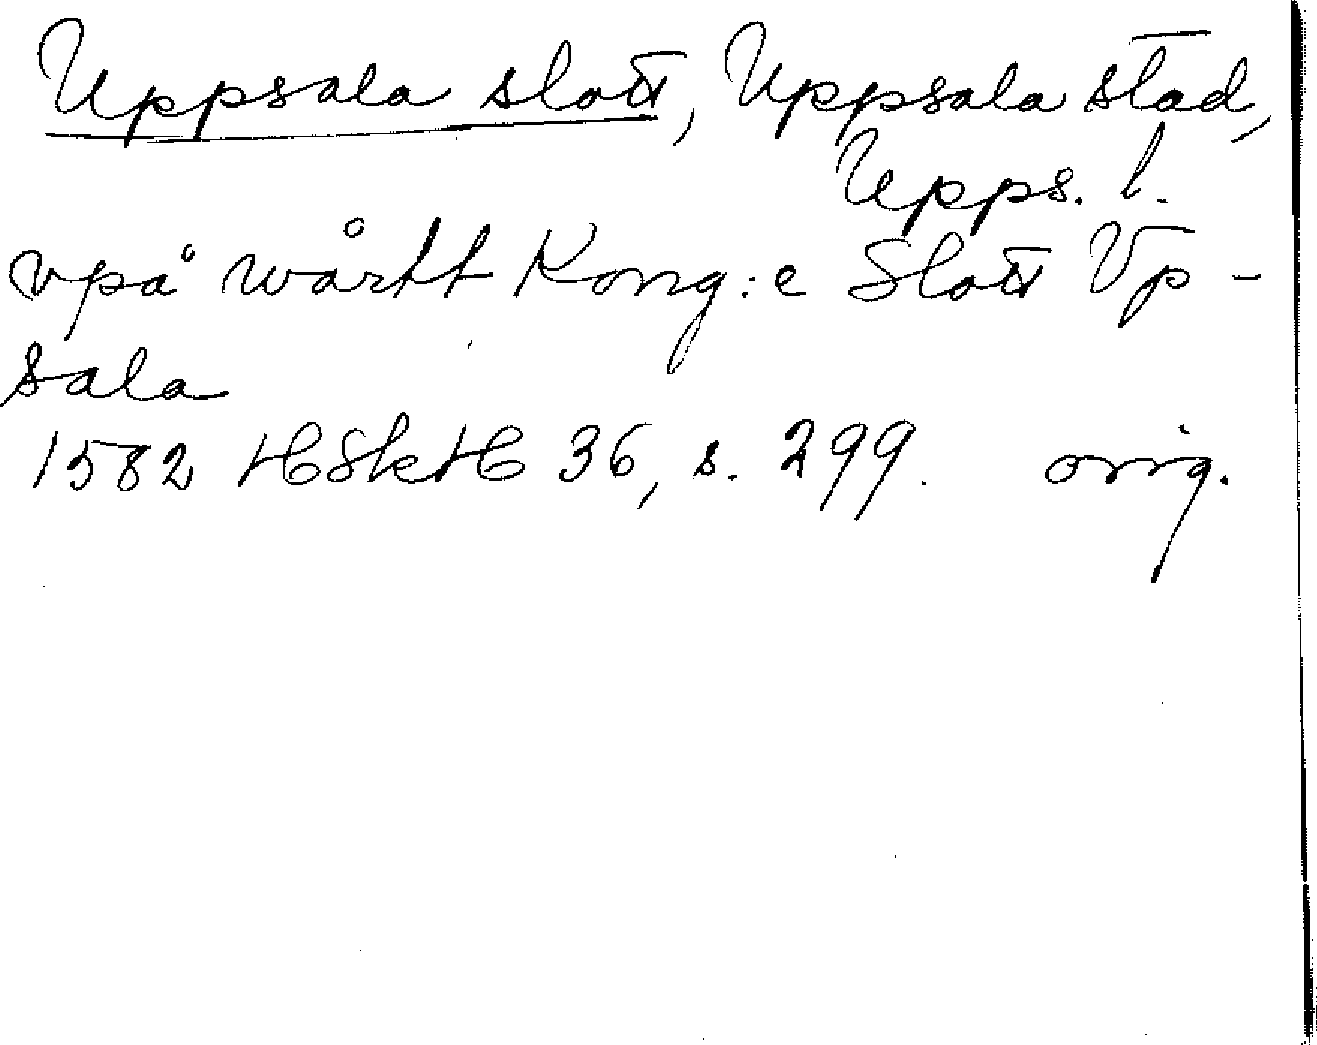 Uppsala slott, Uppsala stad,
Upps. l.
vpå wårtt Kong:e Slott Vp-
sala
1582 HSkH 36, s. 299. orig.